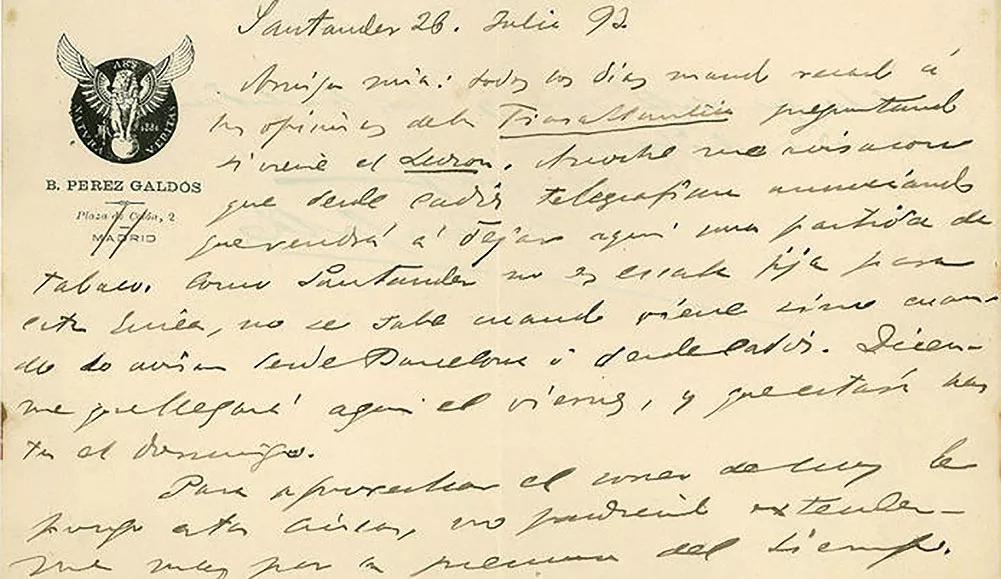 Santander 26. Julio 93.
ARS
NATVRA VERITAS
B. PEREZ GALDÓS
Plaza de Colón, 2
MADRID
Amiga mia: todos los dias mando recado á
las oficinas de la Trasatlantica preguntando
si viene el Luzon. Anoche me avisaron
que desde Cadiz telegrafian anunciando
que vendrá á dejar aqui una partida de
tabaco. Como Santander no es escala fija para
esta linea, no se sabe cuando viene sino cuan-
do lo avisan desde Barcelona ó desde Cadiz. Dicen-
me que llegará aqui el viernes, y que estará has
ta el domingo.
Para aprovechar el correo de hoy le
pongo estas lineas, no pudiendo extender-
me mas por la premura del tiempo.